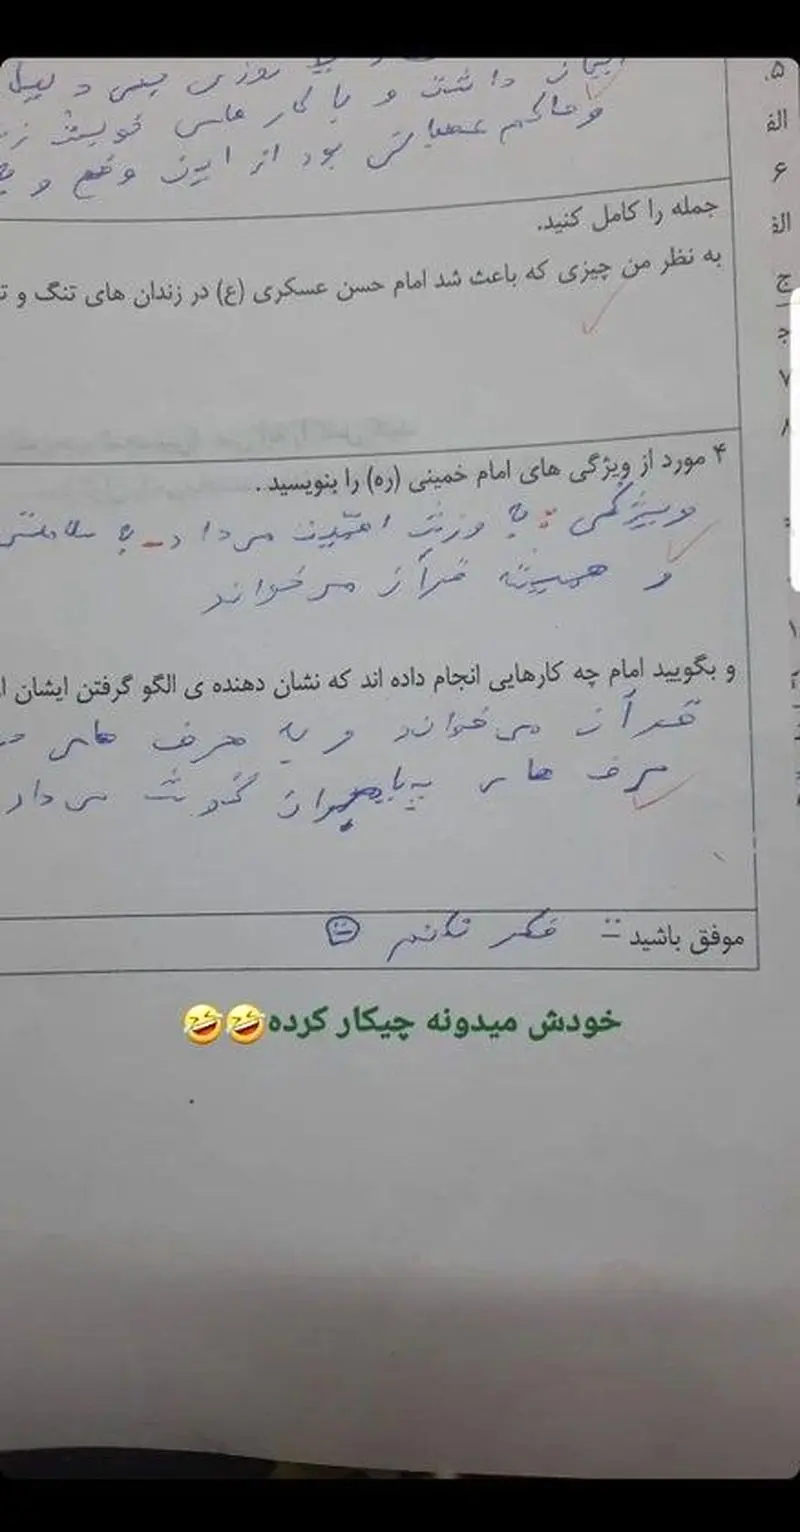 ایمان داشت و روزی
و حاکم عصبانی بود از این وضع و
جمله را کامل کنید.
به نظر من چیزی که باعث شد امام حسن عسکری (ع) در زندان های تنگ و
۴ مورد از ویژگی های امام خمینی (ره) را بنویسید .
ویژگی : به ورزش اهمیت می داد _ به سلامتی
و همیشه قرآن می خواند
و بگویید امام چه کارهایی انجام داده اند که نشان دهنده ی الگو گرفتن ایشان
قرآن می خواند و به حرف های
حرف های پیامبران گوش می داد
موفق باشید فکر نکنم
خودش میدونه چیکار کرده🤣🤣
۵.
الف
۶
الف
ج
ج
۷
۸